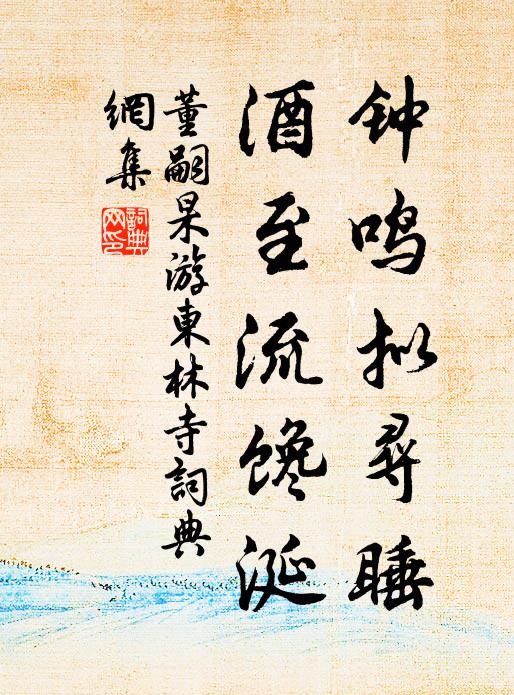 钟鸣拟寻睡
酒至流馋涎
董嗣杲游東林寺詞典
網集
詞典
网印